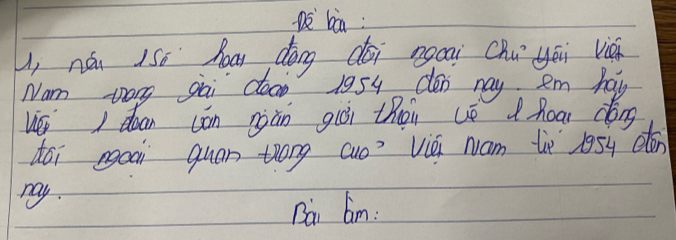 Đề bài:
1, nêu 1 số hoạt động đối ngoại chủ yếu Việt
Nam trong giai đoạn 1954 đến nay. em hãy
Viết 1 đoạn văn ngắn giới thiệu về 1 hoạt động
đối ngoại quan trọng của Việt Nam từ 1954 đến
nay.
Bài làm: